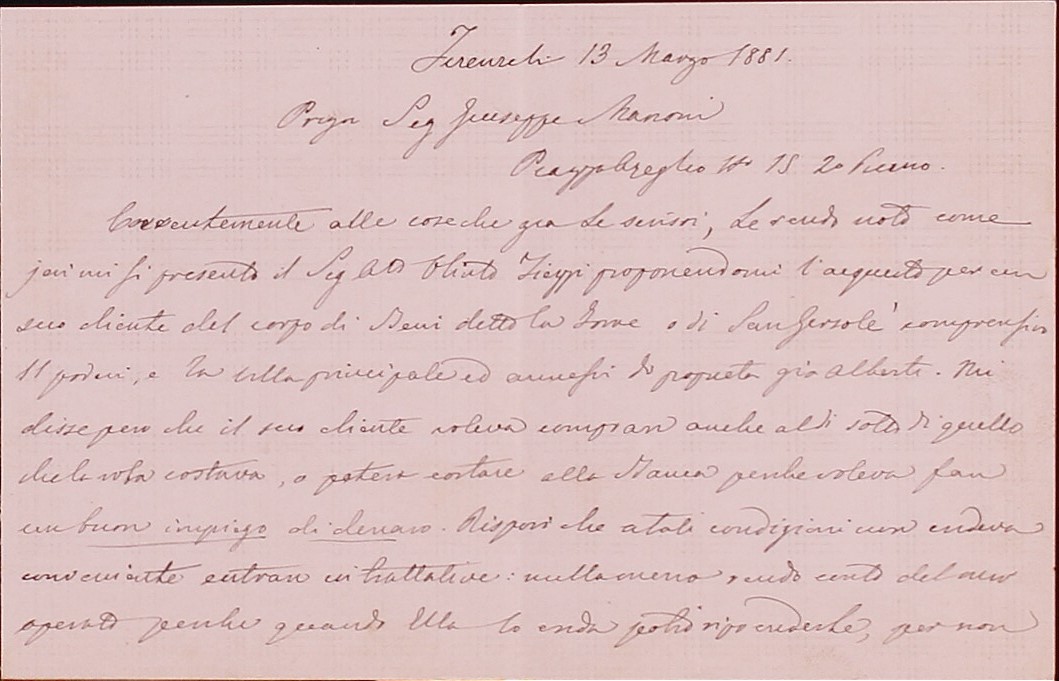 13 Marzo 1881.
Sig Giuseppe Mannoni
Piazza Azeglio N° 15 2° Piano.
alle cose che già Le scrissi, Le rendo noto come
jeri mi si presentò il Sig Olinto proponendomi l'acquisto per un
suo cliente del corpo di Beni detto la Torre o di San Gersolè comprensivo
11 poderi, e la villa principale ed annessi di proprietà già Alberti. Mi
disse però che il suo cliente voleva comprare anche al di sotto di quello
che la roba costava, o poteva costare alla Banca perche voleva fare
un buon impiego di denaro. Risposi che a tali condizioni non credeva
conveniente entrare in trattative: nullameno rendo conto del mio
operato perche quando Ella lo creda per non